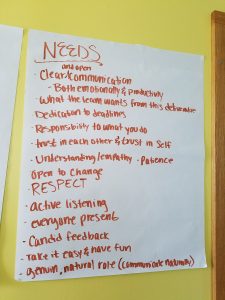 NEEDS
and open
Clear communication
- Both emotionally & productivity
- What the team wants from this
Dedication to deadlines
- Responsibility to what you do
- trust in each other & trust in Self
- Understanding/empathy - Patience
Open to Change
- RESPECT
- active listening
- everyone present
- Candid feedback
- take it easy & have fun
- genuin, natural role (communicate naturally)